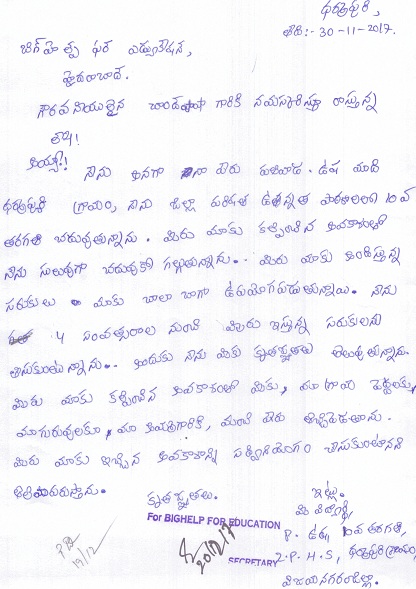 ధర్మపురి,
తేది:- 30-11-2017.
బిగ్ హెల్ప్ ఫర్ ఎడ్యుకేషన్,
హైదరాబాద్.
గౌరవనీయులైన చాంద్ పాషా గారికి నమస్కరిస్తూ రాస్తున్న
లేఖ!
అయ్యా! నేను అనగా నా పేరు ఉష మాది
ధర్మపురి గ్రామం, నేను జిల్లా పరిషత్ ఉన్నత పాఠశాలలో 10వ
తరగతి చదువుతున్నాను. మీరు మాకు కల్పించిన అవకాశంతో
నేను సులువుగా చదువుకో గల్గుతున్నాను.. మీరు మాకు అందిస్తున్న
సరుకులు మాకు చాలా బాగా ఉపయోగపడుతున్నాయి. నేను
4 సంవత్సరాల నుంచి మీరు ఇస్తున్న సరుకులను
తీసుకుంటున్నాను.. అందుకు నేను మీకు కృతజ్ఞతలు తెలుపుతున్నాను.
మీరు మాకు కల్పించిన అవకాశంతో మీకు, మా గ్రామ పెద్దలకు,
మా గురువులకూ, మా గారికి, మంచి పేరు తెచ్చిపెడతాను.
మీరు మాకు ఇచ్చిన అవకాశాన్ని సద్వినియోగం చేసుకుంటానని
తెలియజేస్తున్నాను.
కృతజ్ఞతలు.
ఇట్లు,
మీ విద్యార్థి,
P. ఉష, 10వ తరగతి,
Z.P.H.S, ధర్మపురి గ్రామం,
విజయనగరంజిల్లా.
For BIGHELP FOR EDUCATION
20/12/17
SECRETARY
19/12